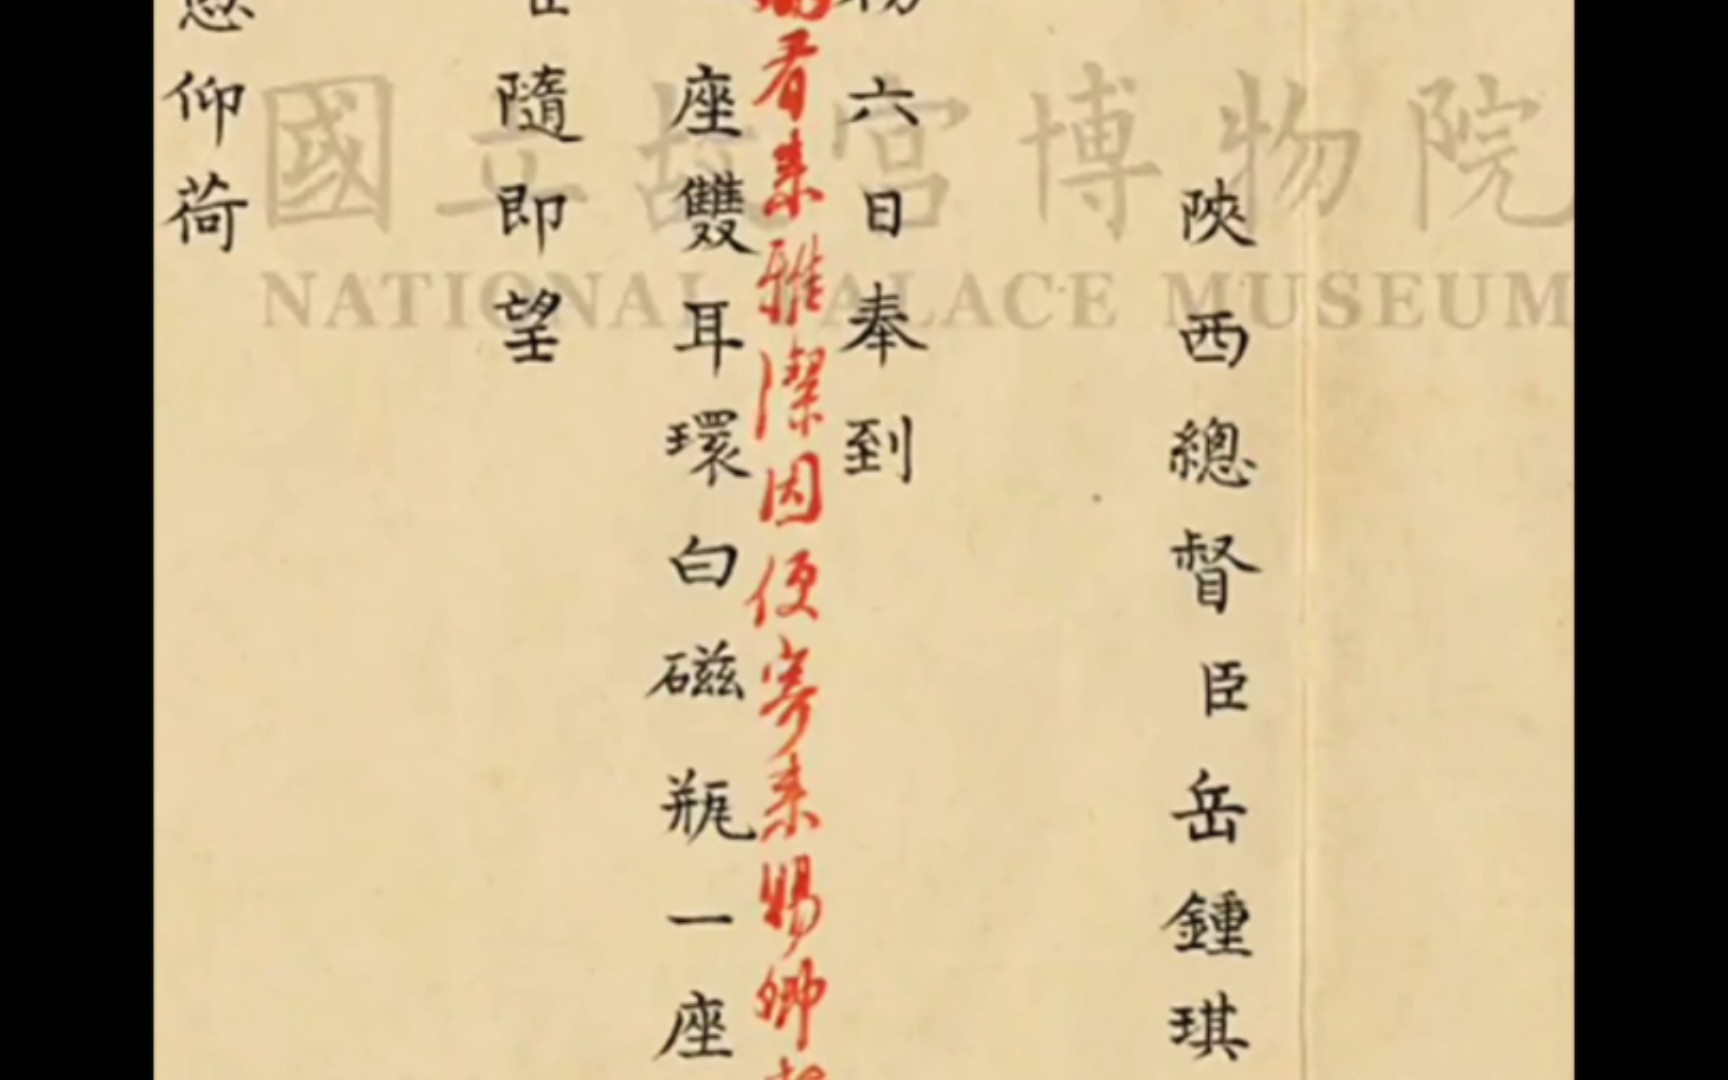 陝西總督臣岳鍾琪
六日奉到
看來雅潔因便寄來賜卿
座雙耳環白磁瓶一座
隨即望
仰荷
國立故宮博物院
NATIONAL PALACE MUSEUM